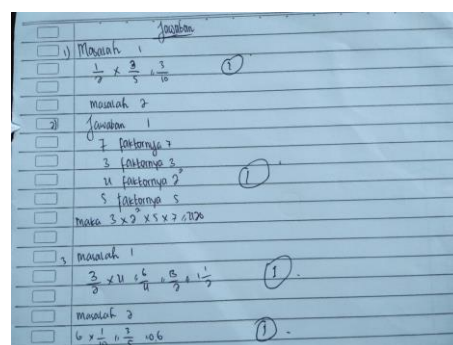 Jawaban
1) Masalah 1
1/2 x 3/5 = 3/10 (1)
masalah 2
2) Jawaban 1
7 faktornya 7
3 faktornya 3
4 faktornya 2² (1)
5 faktornya 5
maka 3 x 2² x 5 x 7 = 420
3 masalah 1
3/2 x 4 = 6/4 = 3/2 = 1 1/2 (1).
masalah 2
6 x 1/10 = 3/5 = 0,6 (1).